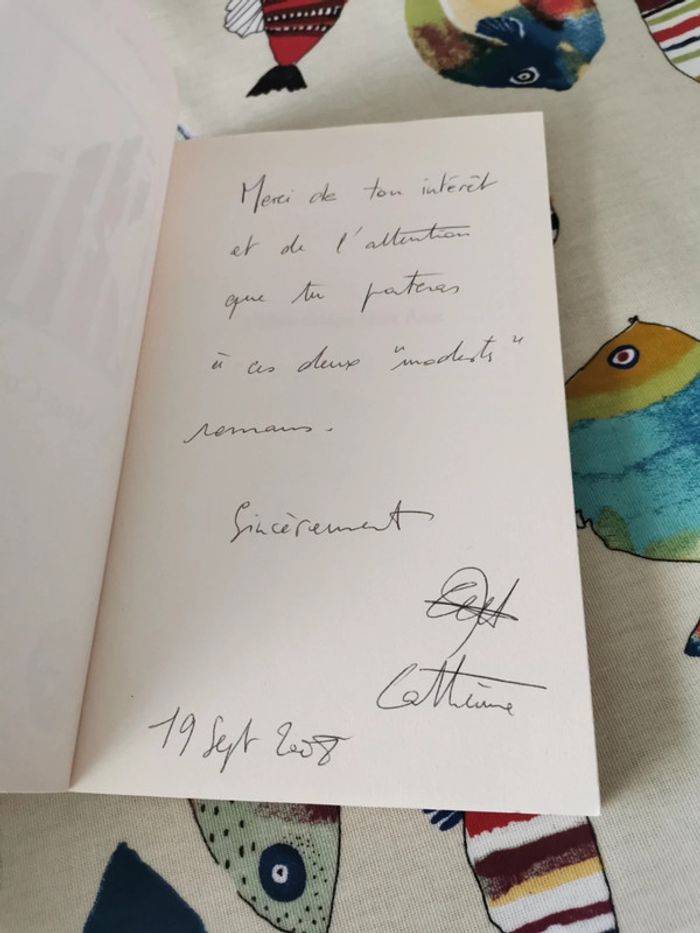 Merci de ton intérêt
et de l'attention
que tu porteras
à ces deux "modests"
romans.
Sincèrement
Catherine
19 Sept 2008